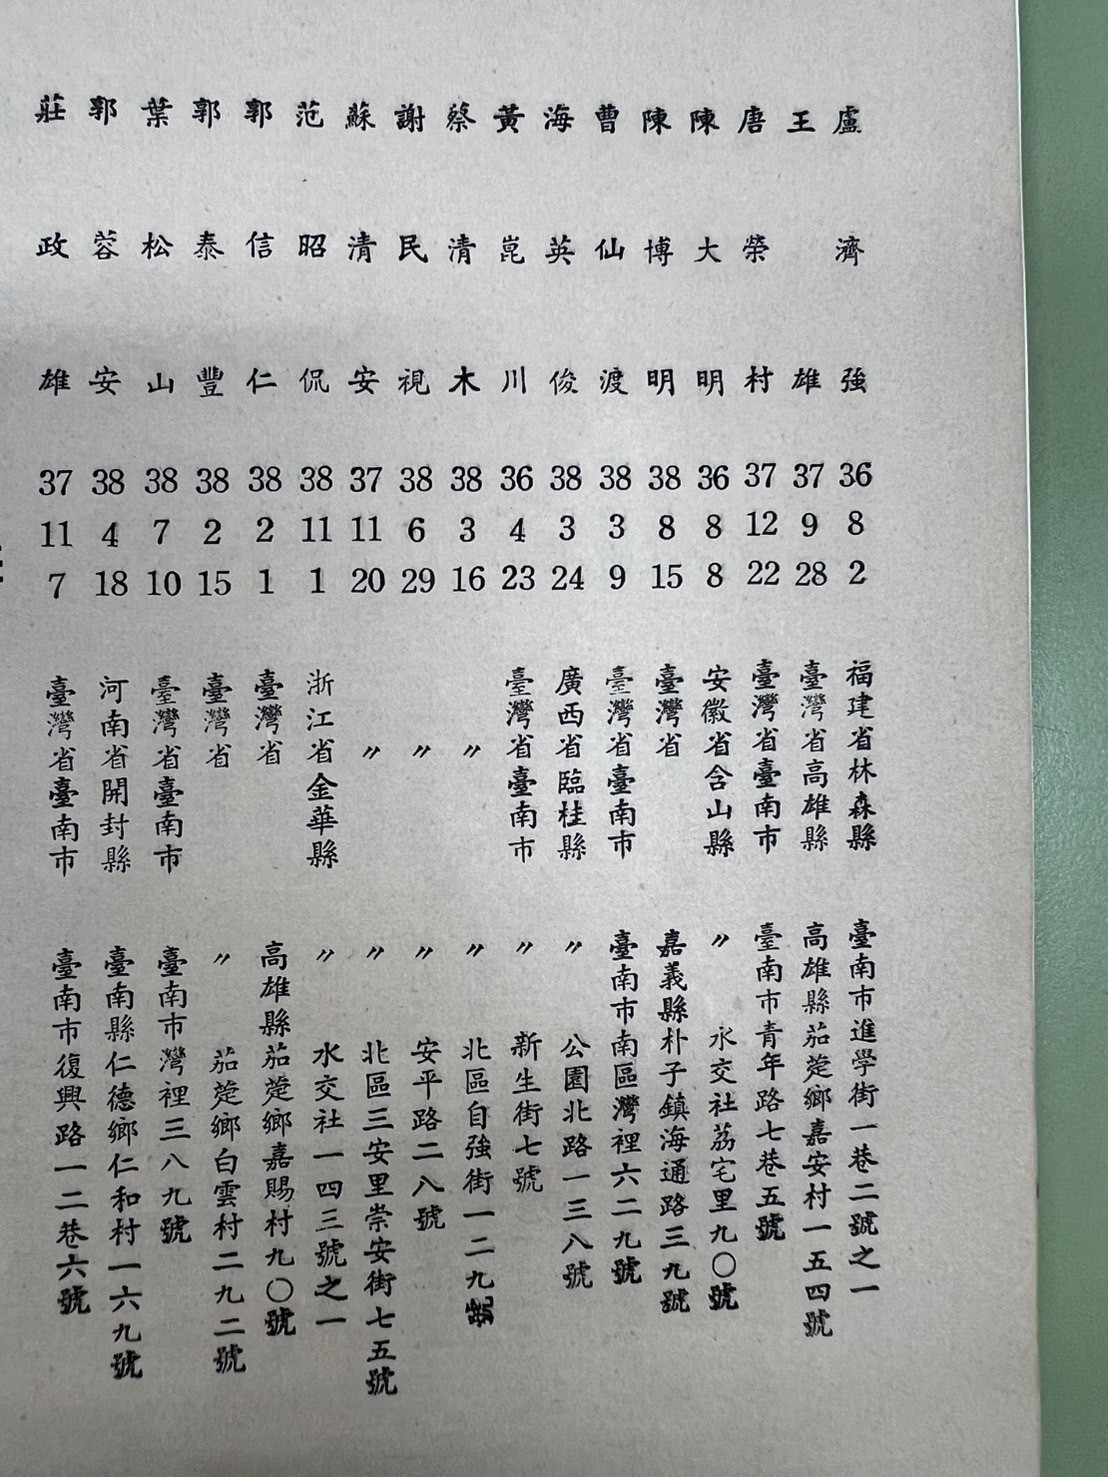 盧濟強 36 8 2 福建省林森縣 臺南市進學街一巷二號之一
王雄 37 9 28 臺灣省高雄縣 高雄縣茄萣鄉嘉安村一五四號
唐榮村 37 12 22 臺灣省臺南市 臺南市青年路七巷五號
陳大明 36 8 8 安徽省含山縣 〃 水交社荔宅里九〇號
陳博明 38 8 15 臺灣省 嘉義縣朴子鎮海通路三九號
曹仙渡 38 3 9 臺灣省臺南市 臺南市南區灣裡六二九號
海英俊 38 3 24 廣西省臨桂縣 〃 公園北路一三八號
黃崑川 36 4 23 臺灣省臺南市 〃 新生街七號
蔡清木 38 3 16 〃 〃 北區自強街一二九號
謝民視 38 6 29 〃 〃 安平路二八號
蘇清安 37 11 20 〃 〃 北區三安里崇安街七五號
范昭侃 38 11 1 浙江省金華縣 〃 水交社一四三號之一
郭信仁 38 2 1 臺灣省 高雄縣茄萣鄉嘉賜村九〇號
郭泰豐 38 2 15 臺灣省 〃 茄萣鄉白雲村二九二號
葉松山 38 7 10 臺灣省臺南市 臺南市灣裡三八九號
郭蓉安 38 4 18 河南省開封縣 臺南縣仁德鄉仁和村一六九號
莊政雄 37 11 7 臺灣省臺南市 臺南市復興路一二巷六號